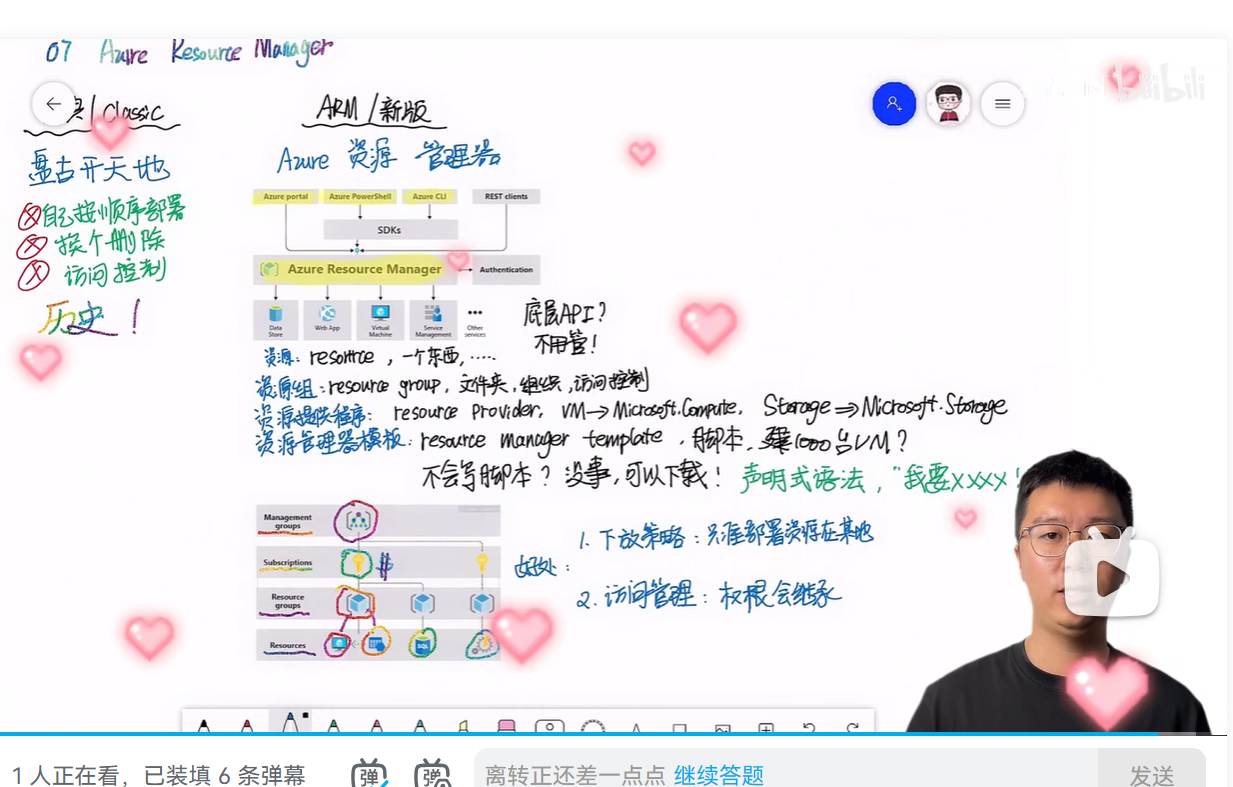 07 Azure Resource Manager
bilibili
Classic
ARM/新版
盘古开天地
Azure 资源 管理器
自己按顺序部署
挨个删除
访问控制
历史!
Azure portal
Azure PowerShell
Azure CLI
REST clients
SDKs
Azure Resource Manager
Authentication
Data Store
Web App
Virtual Machine
Service Management
Other services
底层API?
不用管!
资源: resource, 一个东西, .....
资源组: resource group, 文件夹, 组织, 访问控制
资源提供程序: resource Provider, VM→Microsoft.Compute, Storage⇒Microsoft.Storage
资源管理器模板: resource manager template, 脚本, 建1000台VM?
不会写脚本? 没事, 可以下载! 声明式语法, "我要XXXX!
Management groups
Subscriptions
Resource groups
Resources
SQL
好处:
1. 下放策略: 只准部署资源在某地
2. 访问管理: 权限会继承
1 人正在看, 已装填 6 条弹幕
弹
弹
离转正还差一点点 继续答题
发送